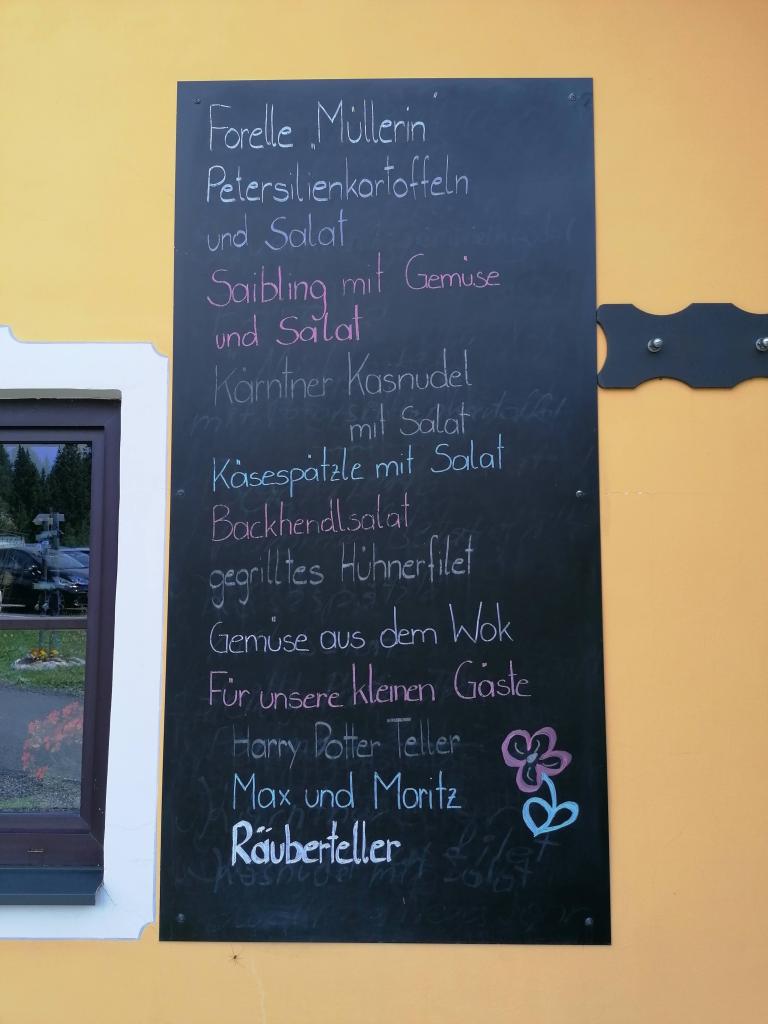 Forelle „Müllerin"
Petersilienkartoffeln
und Salat
Saibling mit Gemüse
und Salat
Kärntner Kasnudel
mit Salat
Käsespätzle mit Salat
Backhendlsalat
gegrilltes Hühnerfilet
Gemüse aus dem Wok
Für unsere kleinen Gäste
Harry Potter Teller
Max und Moritz
Räuberteller